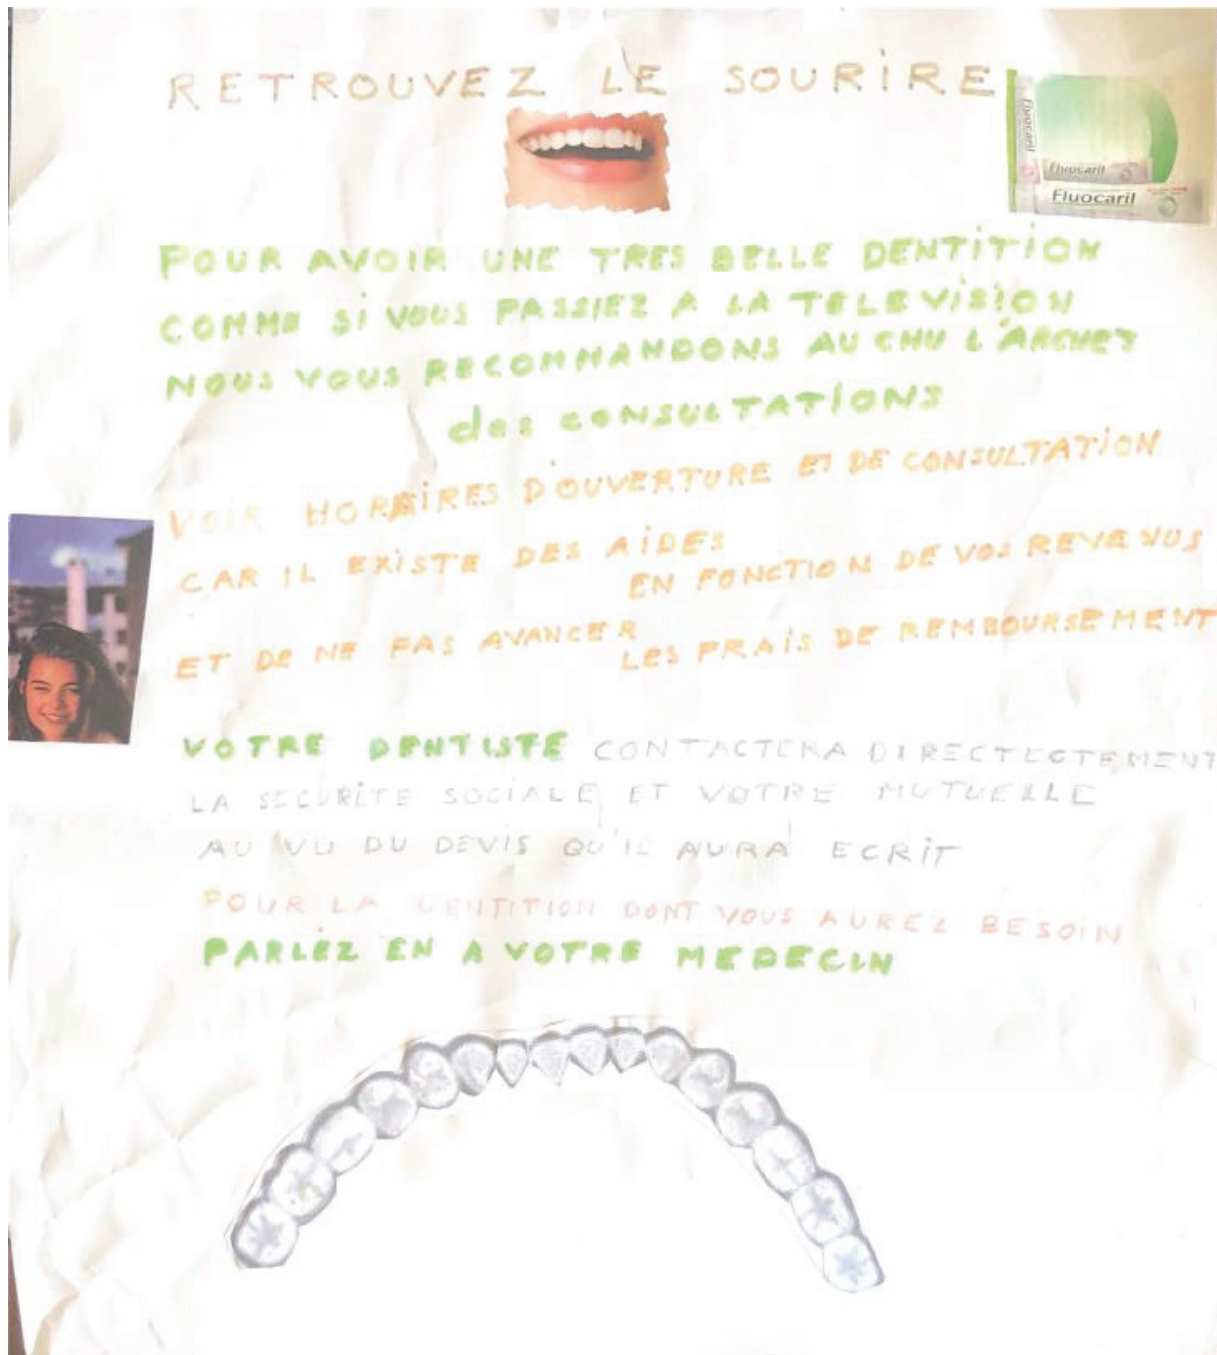 RETROUVEZ LE SOURIRE
Fluocaril
Fluocaril
Fluocaril
POUR AVOIR UNE TRES BELLE DENTITION
COMME SI VOUS PASSIEZ A LA TELEVISION
NOUS VOUS RECOMMANDONS AU CHU L'ARCHET
des CONSULTATIONS
VOIR HORAIRES D'OUVERTURE ET DE CONSULTATION
CAR IL EXISTE DES AIDES EN FONCTION DE VOS REVENUS
ET DE NE PAS AVANCER LES FRAIS DE REMBOURSEMENT
VOTRE DENTISTE CONTACTERA DIRECTECTEMENT
LA SECURITE SOCIALE ET VOTRE MUTUELLE
AU VU DU DEVIS QU'IL AURA ECRIT
POUR LA DENTITION DONT VOUS AUREZ BESOIN
PARLEZ EN A VOTRE MEDECIN